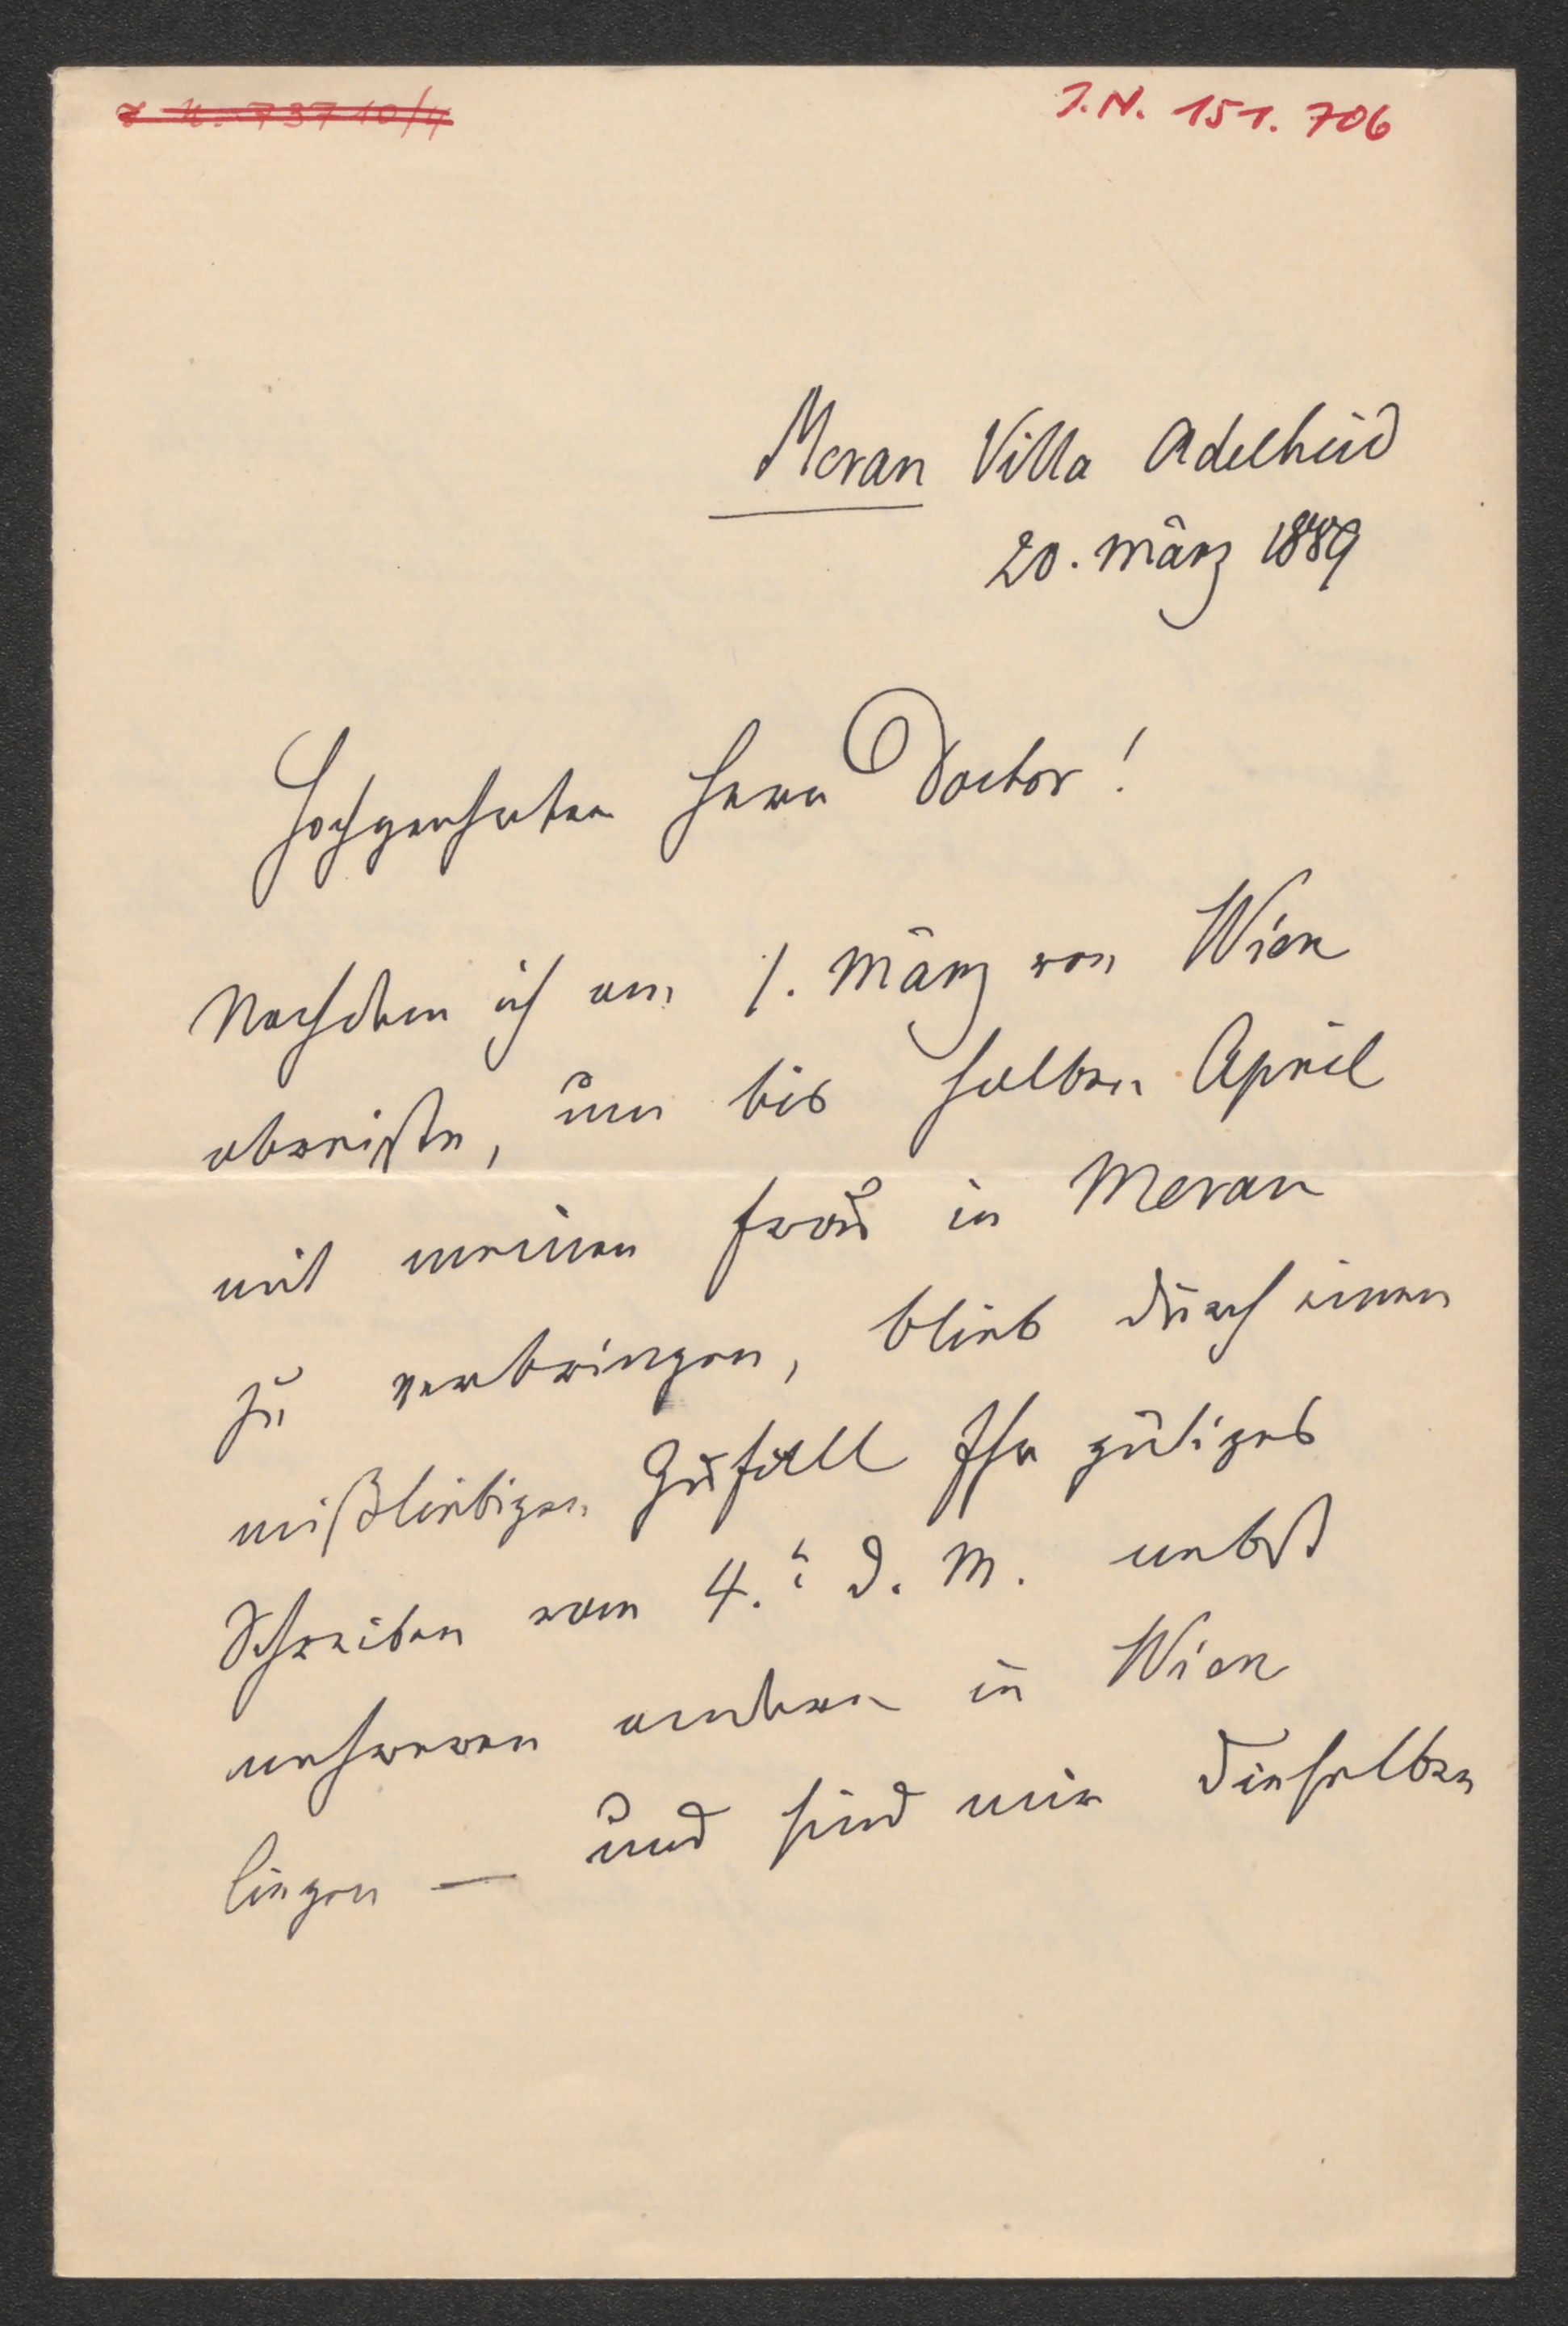 I. N. 73710/4
I.N. 151.706
Meran Villa Adelheid
20. März 1889
Hochgeehrter Herr Doctor!
Nachdem ich am 1. März von Wien
abreiste, um bis halben April
mit meiner Frau in Meran
zu verbringen, blieb durch einen
mißliebigen Zufall Ihr gütiges
Schreiben vom 4. d. M. nebst
mehreren andern in Wien
liegen — und sind mir dieselben